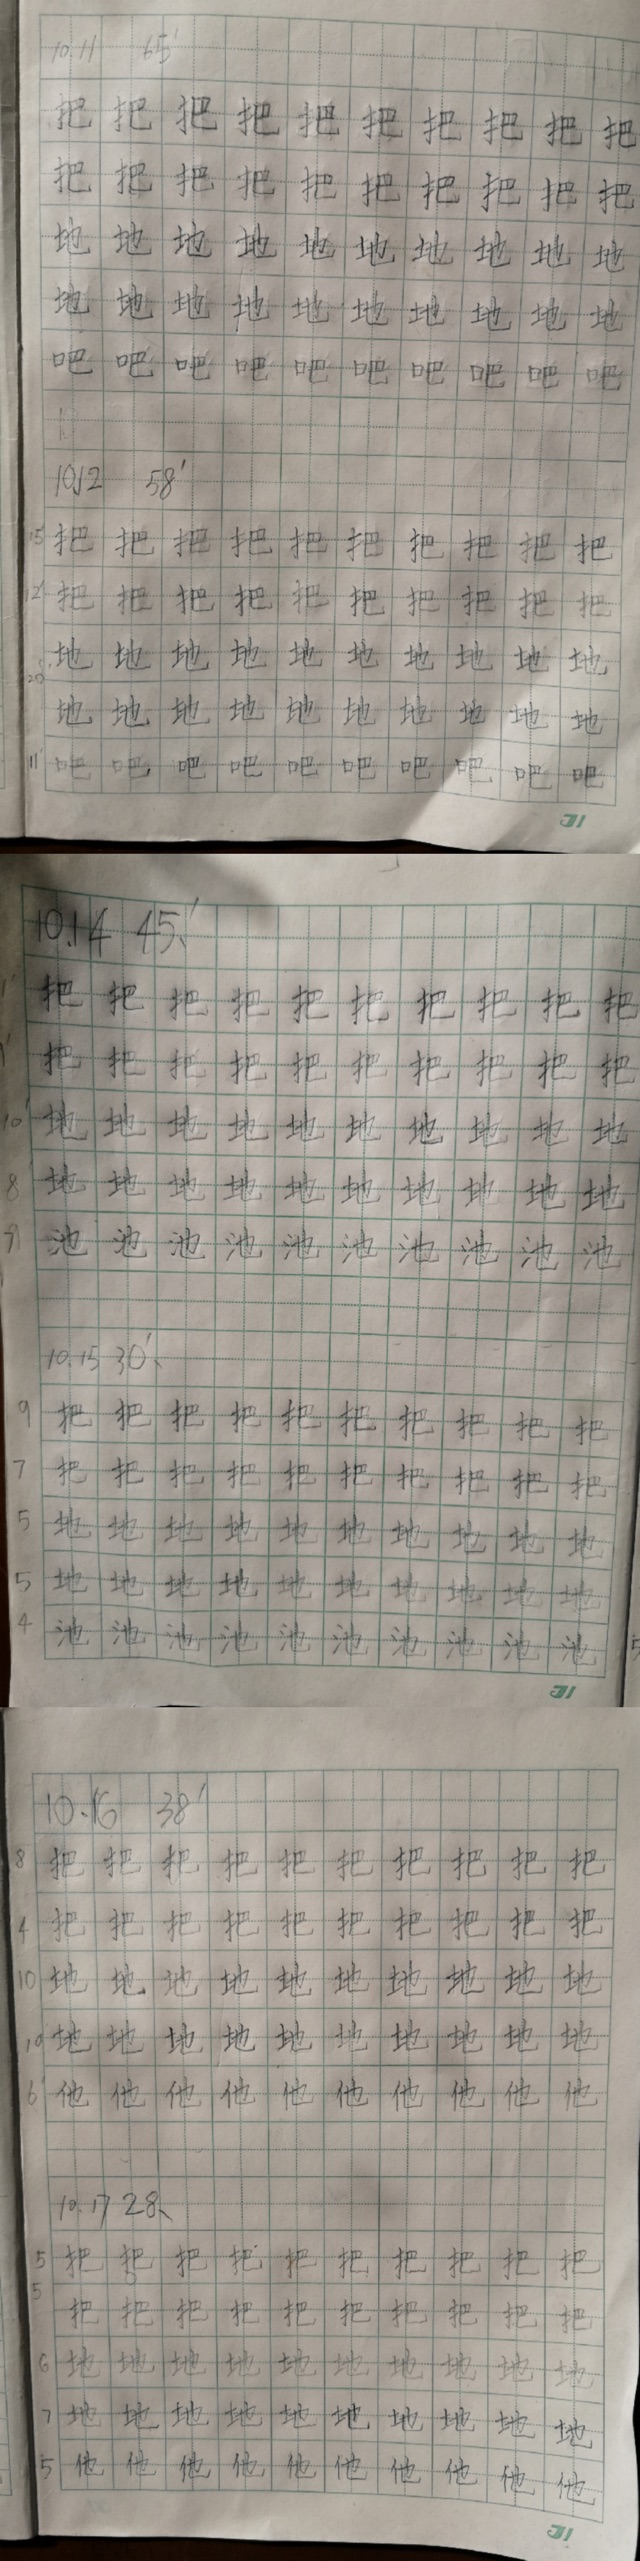 10.11 65′
把把把把把把把把把把
把把把把把把把把把把
地地地地地地地地地地
地地地地地地地地地地
吧吧吧吧吧吧吧吧吧吧
10.12 58′
15′ 把把把把把把把把把把
12′ 把把把把把把把把把把
地地地地地地地地地地
20′
地地地地地地地地地地
11′ 吧吧吧吧吧吧吧吧吧吧
31
10.14 45′
把把把把把把把把把把
把把把把把把把把把把
10′ 地地地地地地地地地地
8 地地地地地地地地地地
7′ 池池池池池池池池池池
10.15 30′
9 把把把把把把把把把把
7 把把把把把把把把把把
5 地地地地地地地地地地
5 地地地地地地地地地地
4 池池池池池池池池池池
31
10.16 38′
8 把把把把把把把把把把
4 把把把把把把把把把把
10 地地地地地地地地地地
10 地地地地地地地地地地
6′ 他他他他他他他他他他
10.17 28、
5 把把把把把把把把把把
5 把把把把把把把把把把
6 地地地地地地地地地地
7 地地地地地地地地地地
5 他他他他他他他他他他
31